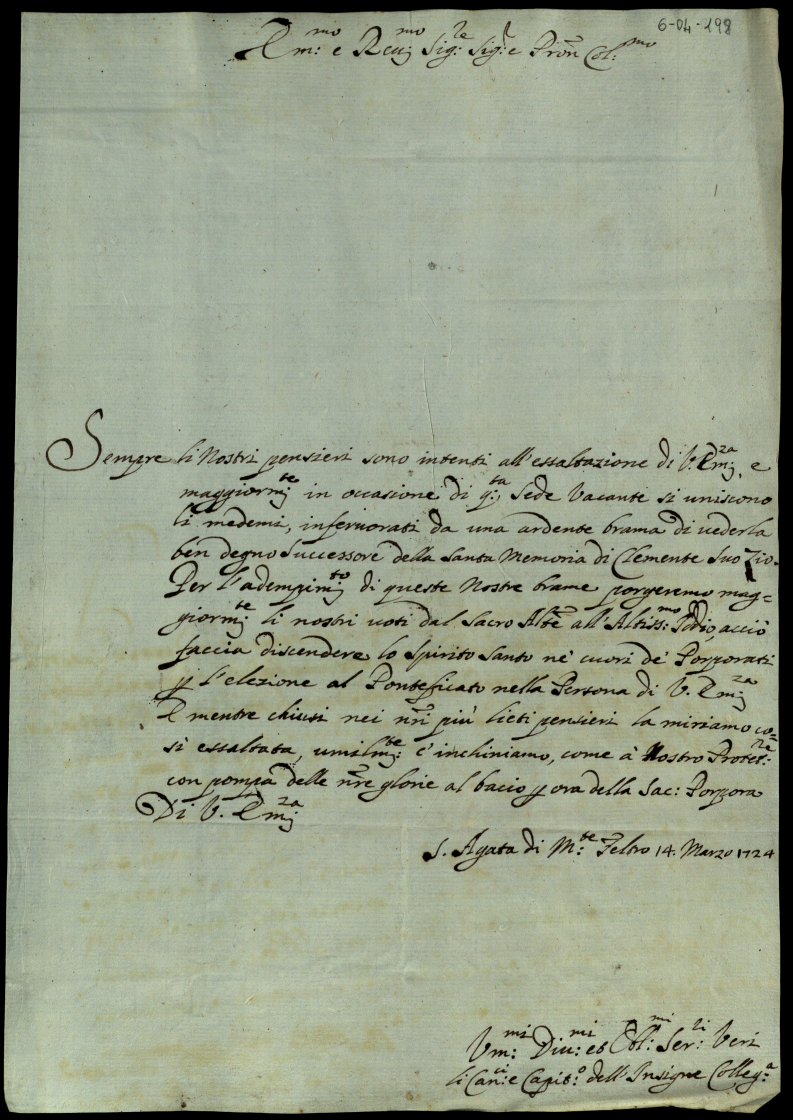 6-04-198
E.mo e Rev.mo Sig.re Sig.r e Pron Col.mo
Sempre li Nostri pensieri sono intenti all'essaltazione di V. Em.za, e
maggiorm.te in occasione di q.ta Sede Vacante si uniscono
li medemi, infervorati da una ardente brama di vederla
ben degno Successore della Santa Memoria di Clemente Suo Zio.
Per l'adempim.to di queste Nostre brame porgeremo mag=
giorm.te li nostri voti dal Sacro Alt.e all'Altiss.mo Iddio, acciò
faccia discendere lo Spirito Santo ne' cuori de' Porporati
p l'elezione al Pontificato nella Persona di V. Em.za
E mentre chiusi nei nri più lieti pensieri la miriamo co=
sì essaltata, umilm.te c'inchiniamo, come à Nostro Protet.re
con pompa delle nre glorie al bacio p ora della Sac: Porpora
Di V. Em.za
S. Agata di M.te Feltro 14. Marzo 1724
Um.mi Div.mi et Obl.mi Ser.ri Veri
li Can.ci e Capit.o dell'Insigne Colleg.a